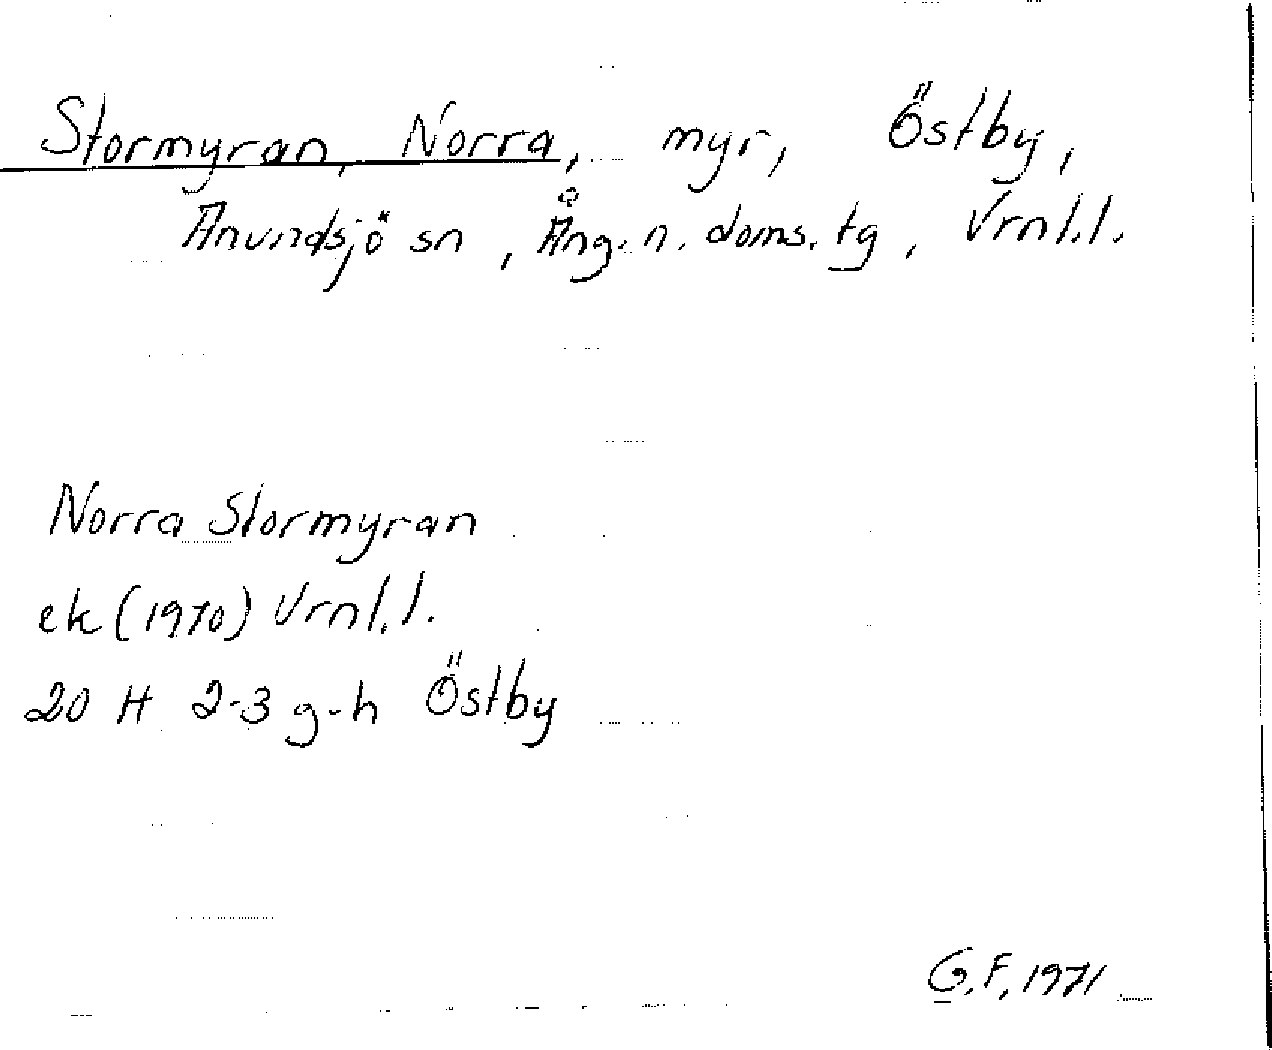 Stormyran, Norra, myr, Östby,
Anundsjö sn, Ång. n. doms. tg, Vrnl.l.
Norra Stormyran
ek (1970) Vrnl.l.
20 H 2-3 g-h Östby
G.F, 1971